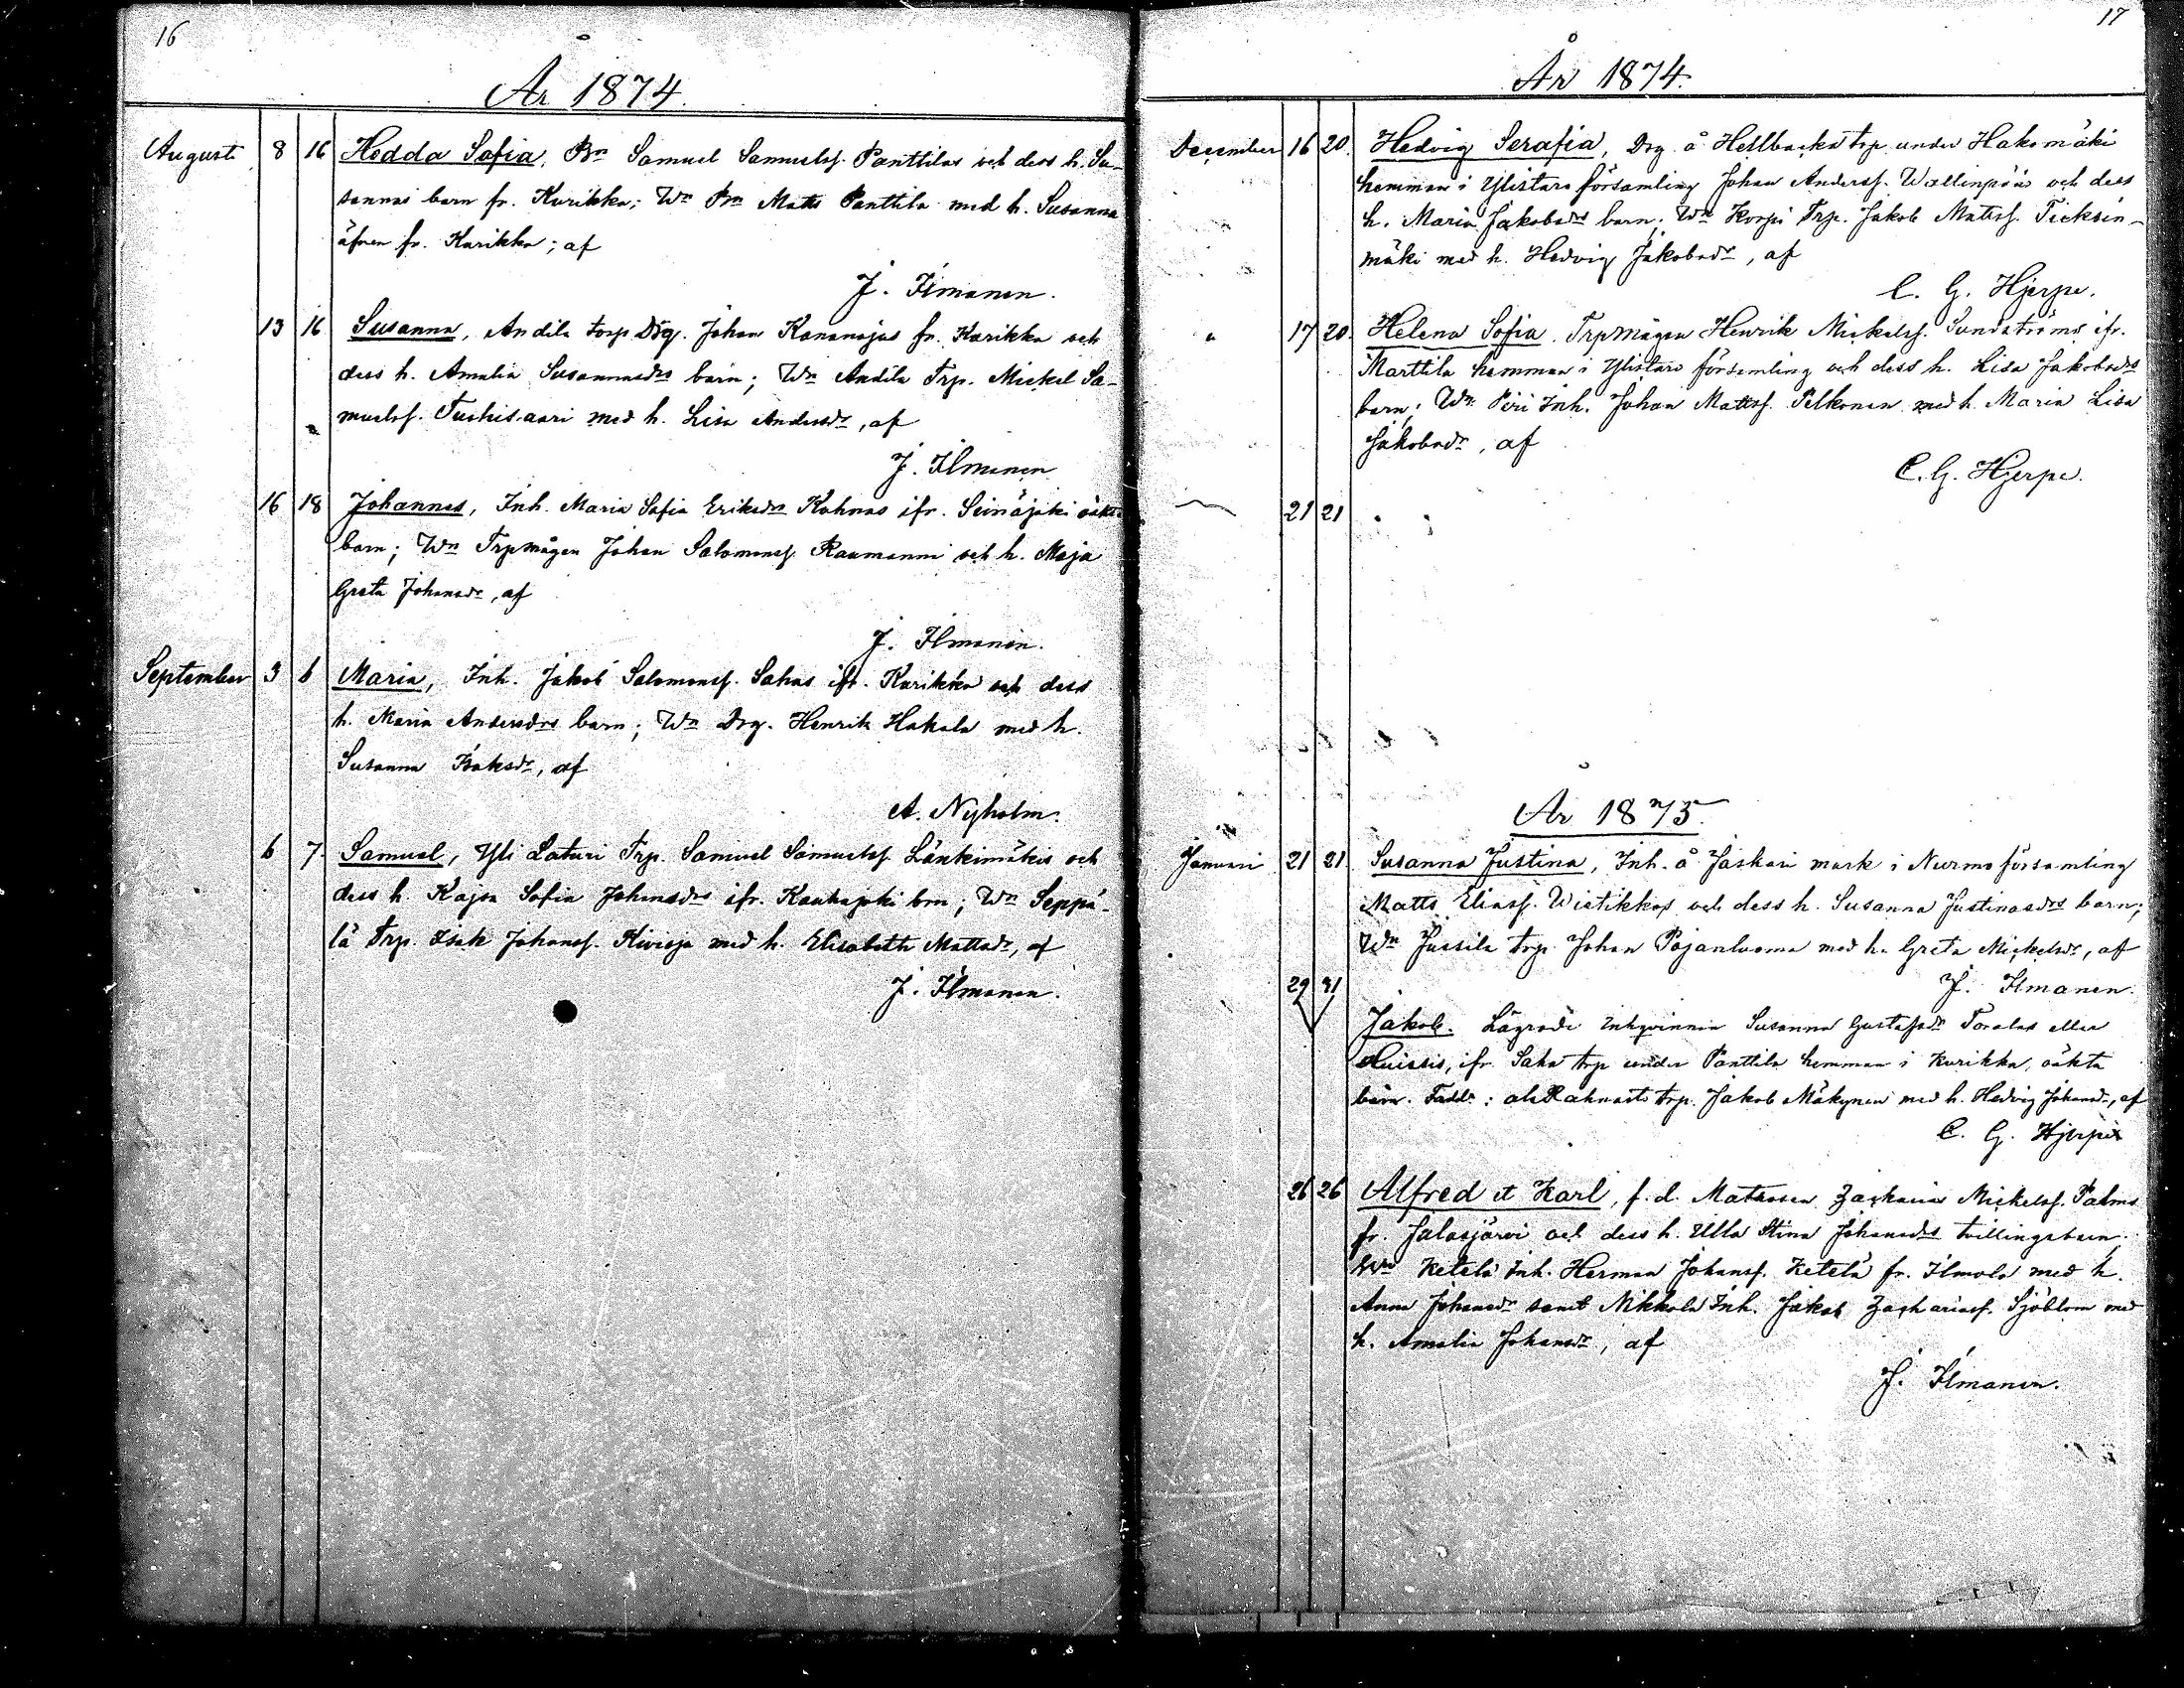 16
År 1874.
Augusti 8 16 Hedda Sofia, Bn Samuel Samuelsf. Panttilas och dess h. Su-
sannas barn fr. Kurikka; Wn Bn Matts Panttila med h. Susanna
äfven fr. Kurikka; af
J. Ilmanen.
13 16 Susanna, Andila torp Drg. Johan Kananojas fr. Kurikka och
dess h. Amalia Susannadrs barn; Wn Andila Trp. Mickel Sa-
muelsf. Tuohisaari med h. Lisa Andersdr, af
J. Ilmanen
16 18 Johannes, Inh. Maria Sofia Eriksdrs Kohnas ifr. Seinäjoki oäkta
barn; Wn Trpmågen Johan Salomonsf. Raumanni och h. Maja
Greta Johansdr, af
J. Ilmanen.
September 3 6 Maria, Inh. Jakob Salomonsf. Sahas ifr. Kurikka och dess
h. Maria Andersdrs barn; Wn Drg. Henrik Hakala med h.
Susanna Isaksdr, af
A. Nyholm.
6 7 Samuel, Yli Laturi Trp. Samuel Samuelsf. Länkimäkis och
dess h. Kajsa Sofia Johansdrs ifr. Kauhajoki brn; Wn Seppä-
lä Trp. Isak Johansf. Kivioja med h. Elisabeth Mattsdr, af
J. Ilmanen.
17
År 1874.
December 16 20. Hedvig Serafia, Drg å Hellbacka trp under Hakomäki
hemman i Ylistaro församling Johan Andersf. Wallinpääs och dess
h. Maria Jakobsdrs barn; Wn Korpi Trp. Jakob Mattsf. Ticksin-
mäki med h. Hedvig Jakobsdr, af
C. G. Hjerpe.
" 17 20. Helena Sofia. Trpmågen Henrik Mickelsf. Sundströms ifr.
Marttila hemman i Ylistaro församling och dess h. Lisa Jakobsdrs
barn; Wn Piri Inh. Johan Mattsf. Pelkonen med h. Maria Lisa
Jakobsdr, af
C. G. Hjerpe.
21 21
År 1875.
Januari 21 21 Susanna Justina, Inh. å Jaskari mark i Nurmo församling
Matts Eliasf. Wistikkas och dess h. Susanna Justinasdrs barn;
Wn Jussila trp. Johan Pojanluoma med h. Greta Mickelsdr, af
J. Ilmanen.
29 31
Jakob. Lägrade inhqvinnan Susanna Gustafsdr Toralas eller
ifr. Saha trp under Panttila hemman i Kurikka, oäkta
barn. Faddr: trp. Jakob Mäkynen med h. Hedvig Johansdr, af
C. G. Hjerpe
26 26 Alfred et Karl, f. d. Matrosen Zacharias Mickelsf. Palms
fr. Jalasjärvi och dess h. Ulla Stina Johansdrs tvillingsbarn.
Wn Ketelä Inh. Herman Johansf. Ketelä fr. Ilmola med h.
Anna Johansdr samt Nikkola Inh. Jakob Zachariasf. Sjöblom med
h. Amalia Johansdr, af
J. Ilmanen.